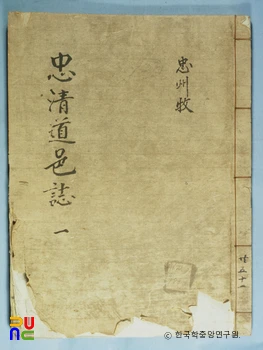 忠州牧
忠清道邑誌 一
共五十一
UNC
ⓒ한국학중앙연구원